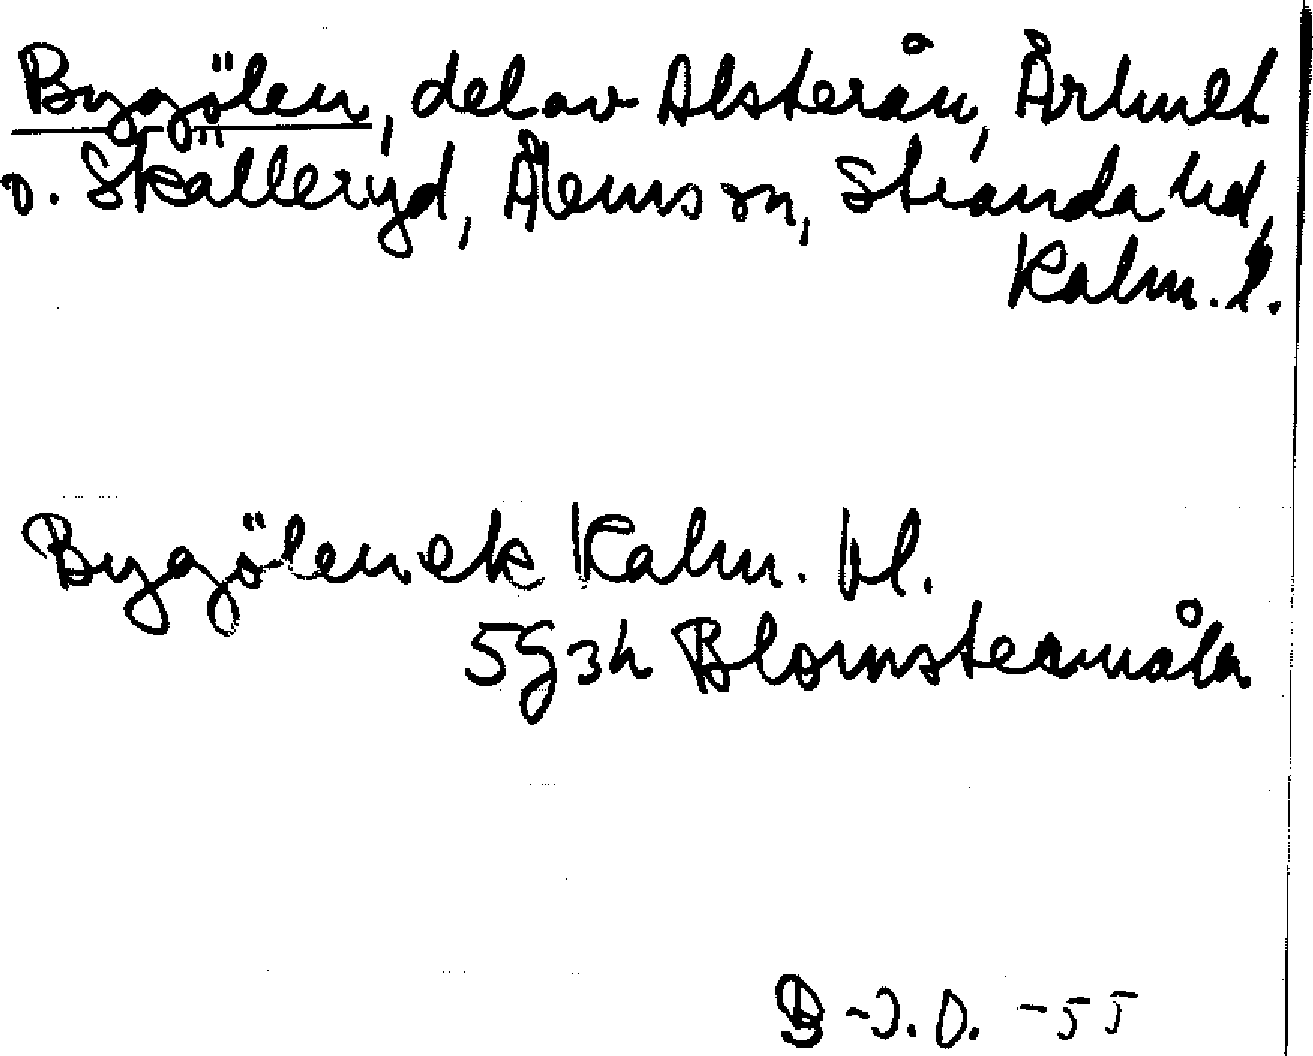 Bygölen, del av Alsterån, Århult
o. Skälleryd, Ålems sn, Stranda hd,
Kalm. l.
Bygölen ek Kalm. hl.
5G3h Blomstermåla
B-J.O. -55